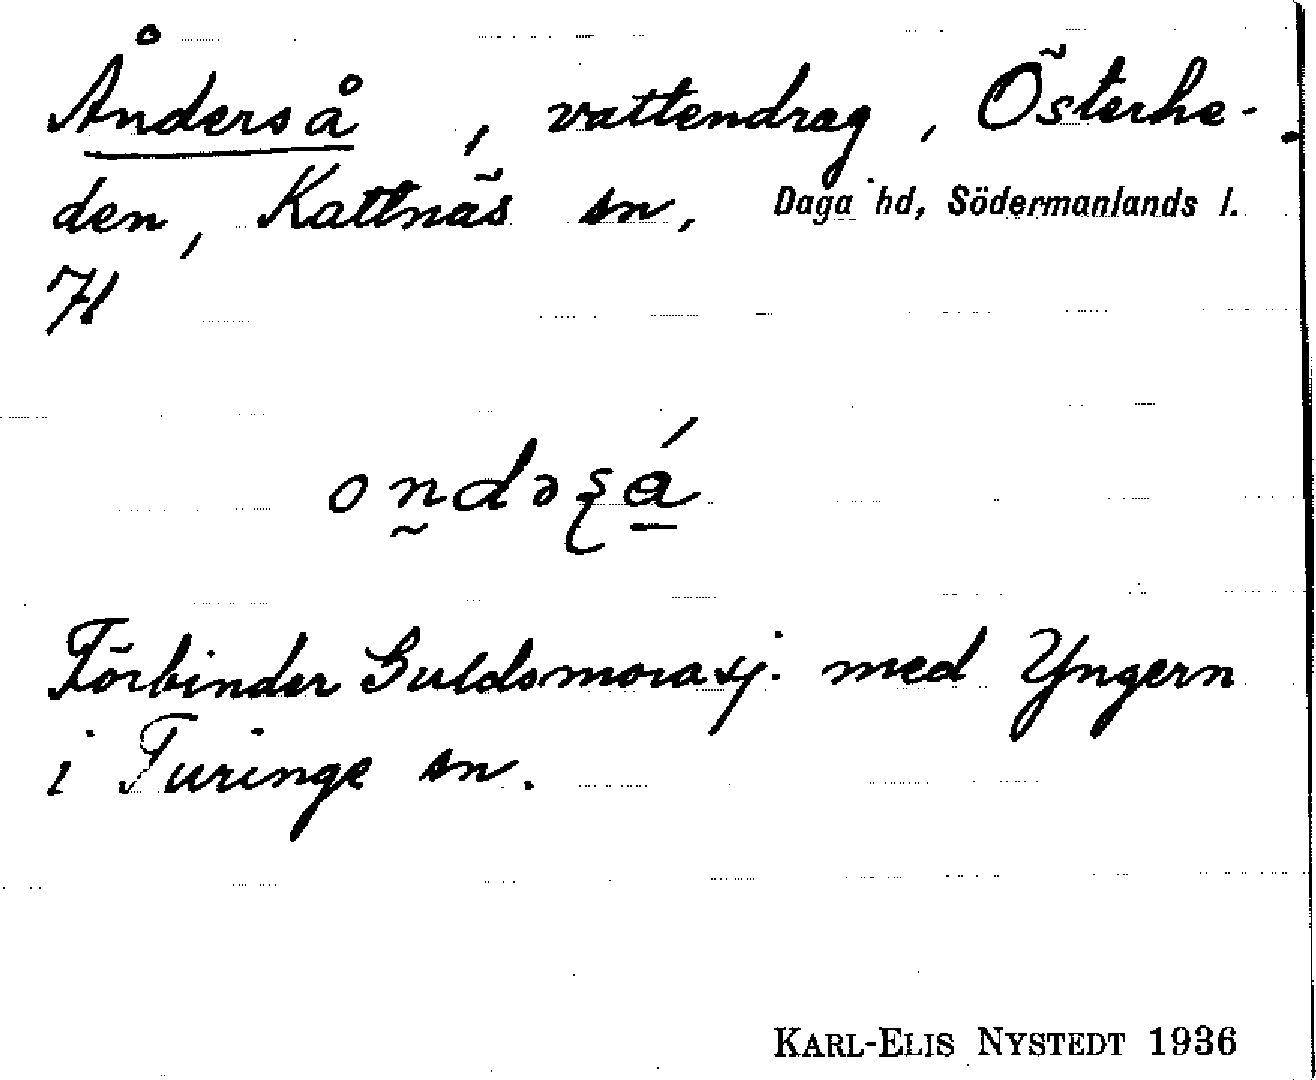 Ånderså, vattendrag, Österhe-
den, Kattnäs sn, Daga hd, Södermanlands l.
71
on̰dəʂá̱
Förbinder Guldsmorasj. med Yngern
i Turinge sn.
KARL-ELIS NYSTEDT 1936